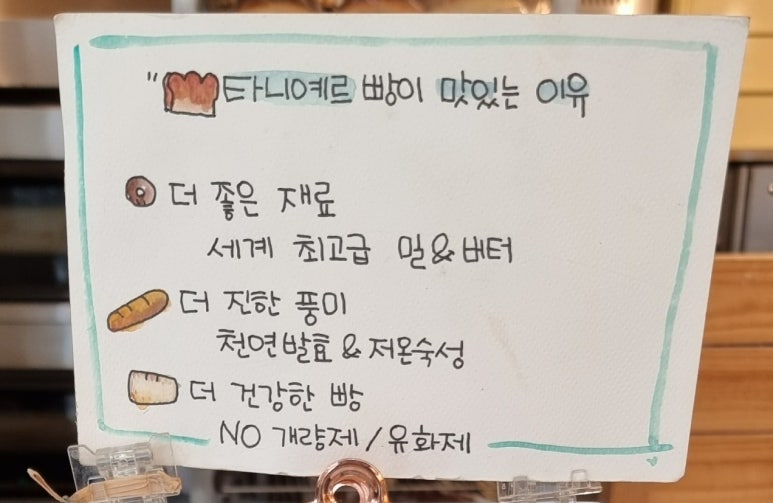 " 타니예르 빵이 맛있는 이유
더 좋은 재료
세계 최고급 밀&버터
더 진한 풍미
천연발효 & 저온숙성
더 건강한 빵
NO 개량제 / 유화제